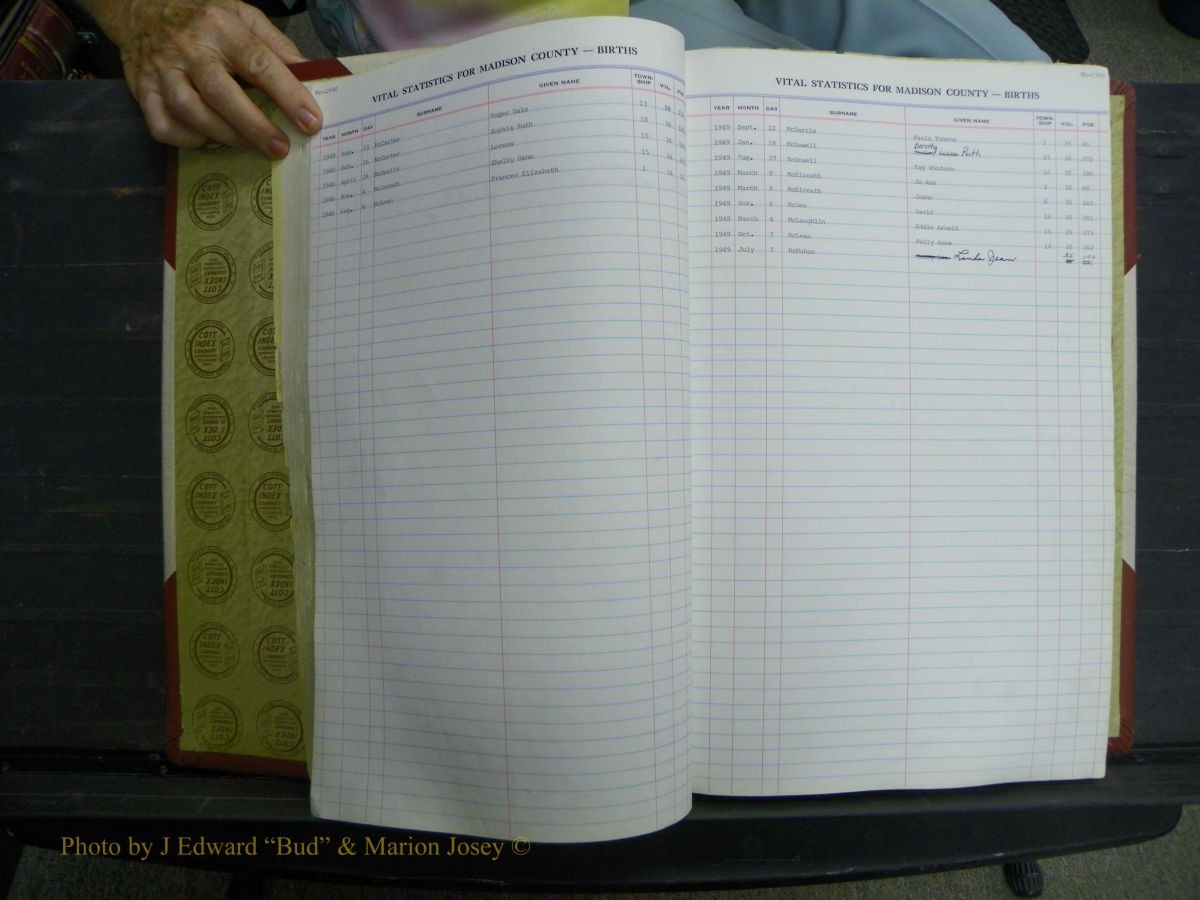 Mc-1948
VITAL STATISTICS FOR MADISON COUNTY — BIRTHS
YEAR MONTH DAY SURNAME GIVEN NAME TOWN-SHIP VOL. PGE.
1948 Aug. 23 McCarter Roger Dale 13 34
1948 Oct. 26 McCarter Sophia Ruth 10 34
1948 April 25 McDevitt Lorena 10 34
1948 Nov. 4 McIntosh Shelby Gene 15 34
1948 Aug. 4 McLean Frances Elizabeth 1 34
Mc-1949
VITAL STATISTICS FOR MADISON COUNTY — BIRTHS
YEAR MONTH DAY SURNAME GIVEN NAME TOWN-SHIP VOL. PGE.
1949 Sept. 12 McBurris Paula Yvonne 1 35 85
1949 Jan. 18 McDowell Dorothy Ruth 15 35 272
1949 Aug. 27 McDowell Ray Woodson 16 35 290
1949 March 9 McElreath Jo Ann 2 35 86
1949 March 9 McElreath Joann 6 35 162
1949 Nov. 6 McGee David 16 35 291
1949 March 4 McLaughlin Eddie Arnold 15 35 273
1949 Oct. 7 McLean Polly Anna 14 35 262
1949 July 7 McMahan Linda Jean 35 106
COTT INDEX COMPANY
Photo by J Edward “Bud” & Marion Josey ©